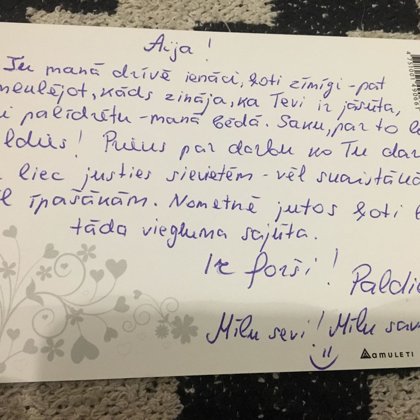 Aija!
Tu manā dzīvē ienāci ļoti zīmīgi - pat
nemeklējot, kāds zināja, ka Tevi ir jāsūta,
palīdzētu - manā bēdā. Saku, par to
Prieks par darbu ko Tu
liec justies sievietēm - vēl skaistākām
īpašākām. Nometnē jutos ļoti
tāda viegluma sajūta.
Ir forši!
Paldies
Mīlu sevi! Mīlu sav
AMULETI